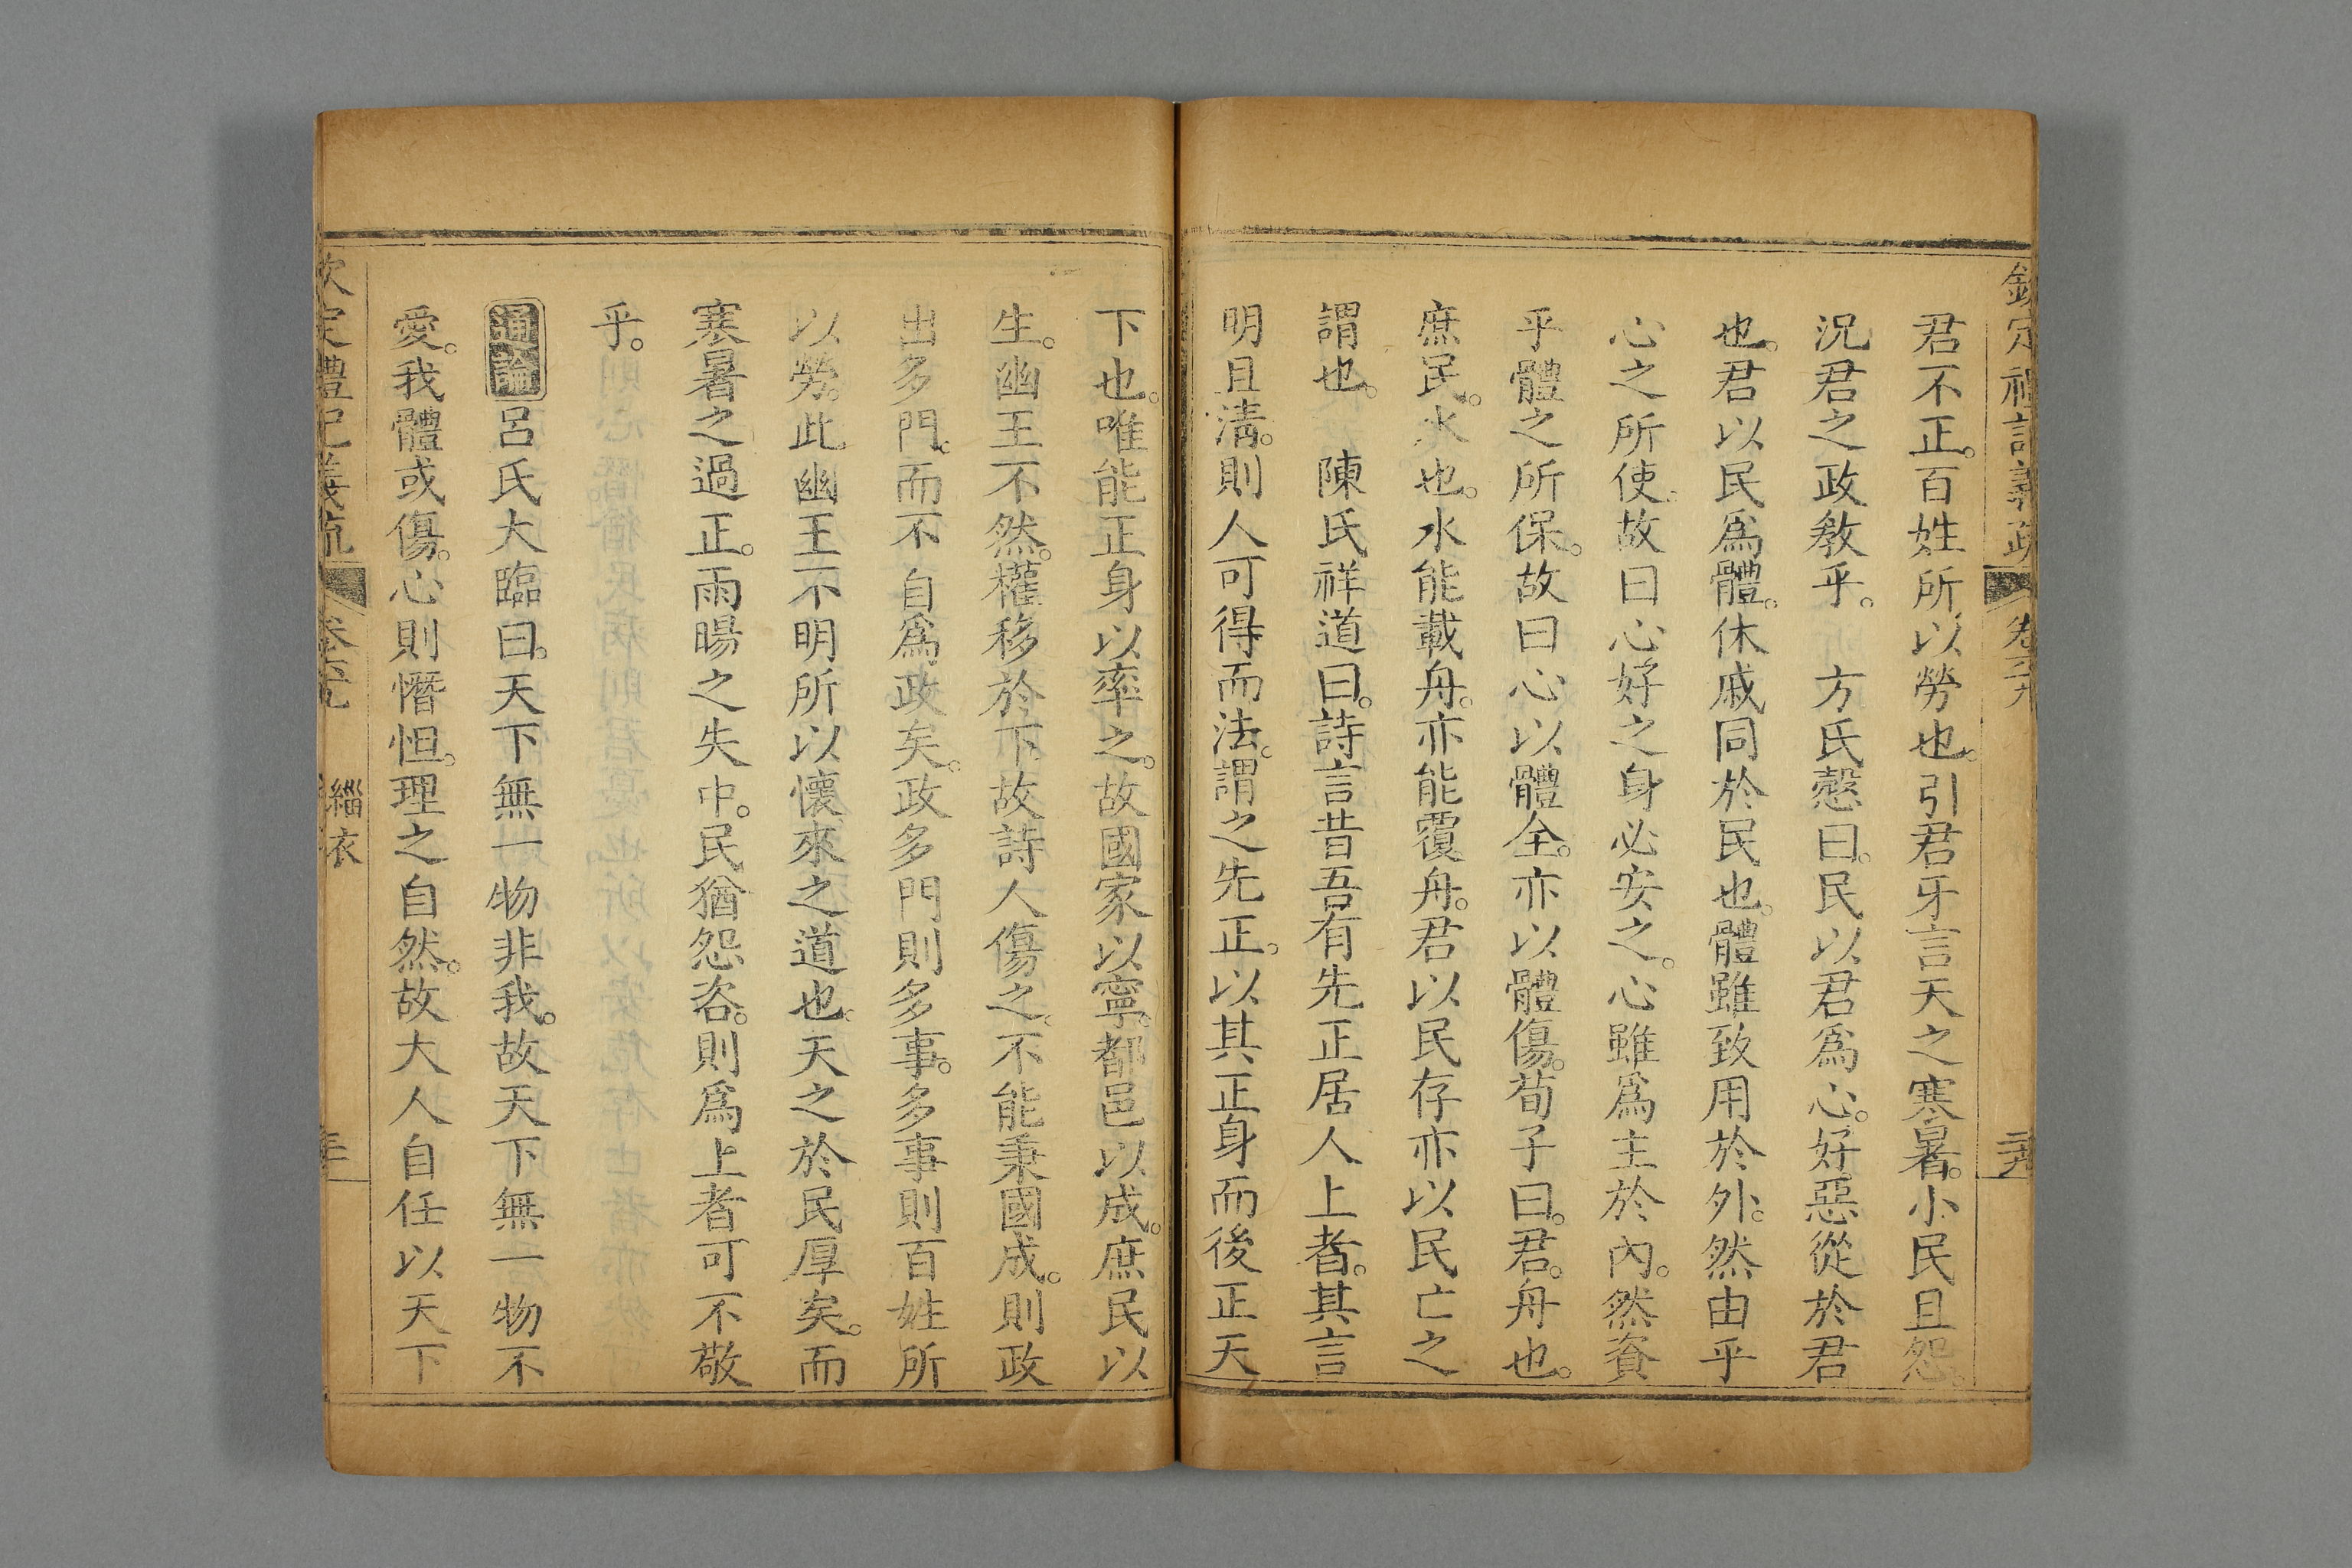 欽定禮記義疏 卷六九 二十九
君不正。百姓所以勞也。引君牙言天之寒暑。小民且怨。
況君之政敎乎。 方氏慤曰。民以君爲心。好惡從於君
也。君以民爲體。休戚同於民也。體雖致用於外。然由乎
心之所使。故曰心好之身必安之。心雖爲主於內。然資
乎體之所保。故曰心以體全。亦以體傷。荀子曰。君。舟也。
庶民。水也。水能載舟。亦能覆舟。君以民存亦以民亡之
謂也。 陳氏祥道曰。詩言昔吾有先正居人上者。其言
明且淸。則人可得而法。謂之先正。以其正身而後正天
下也。唯能正身以率之。故國家以寧。都邑以成。庶民以
生。幽王不然。權移於下故詩人傷之。不能秉國成。則政
出多門。而不自爲政矣。政多門則多事。多事則百姓所
以勞。此幽王不明所以懷來之道也。天之於民厚矣。而
寒暑之過正。雨暘之失中。民猶怨咨。則爲上者可不敬
乎。
通論 呂氏大臨曰。天下無一物非我。故天下無一物不
愛。我體或傷。心則憯怛。理之自然。故大人自任以天下
欽定禮記義疏 卷六九 緇衣 三十